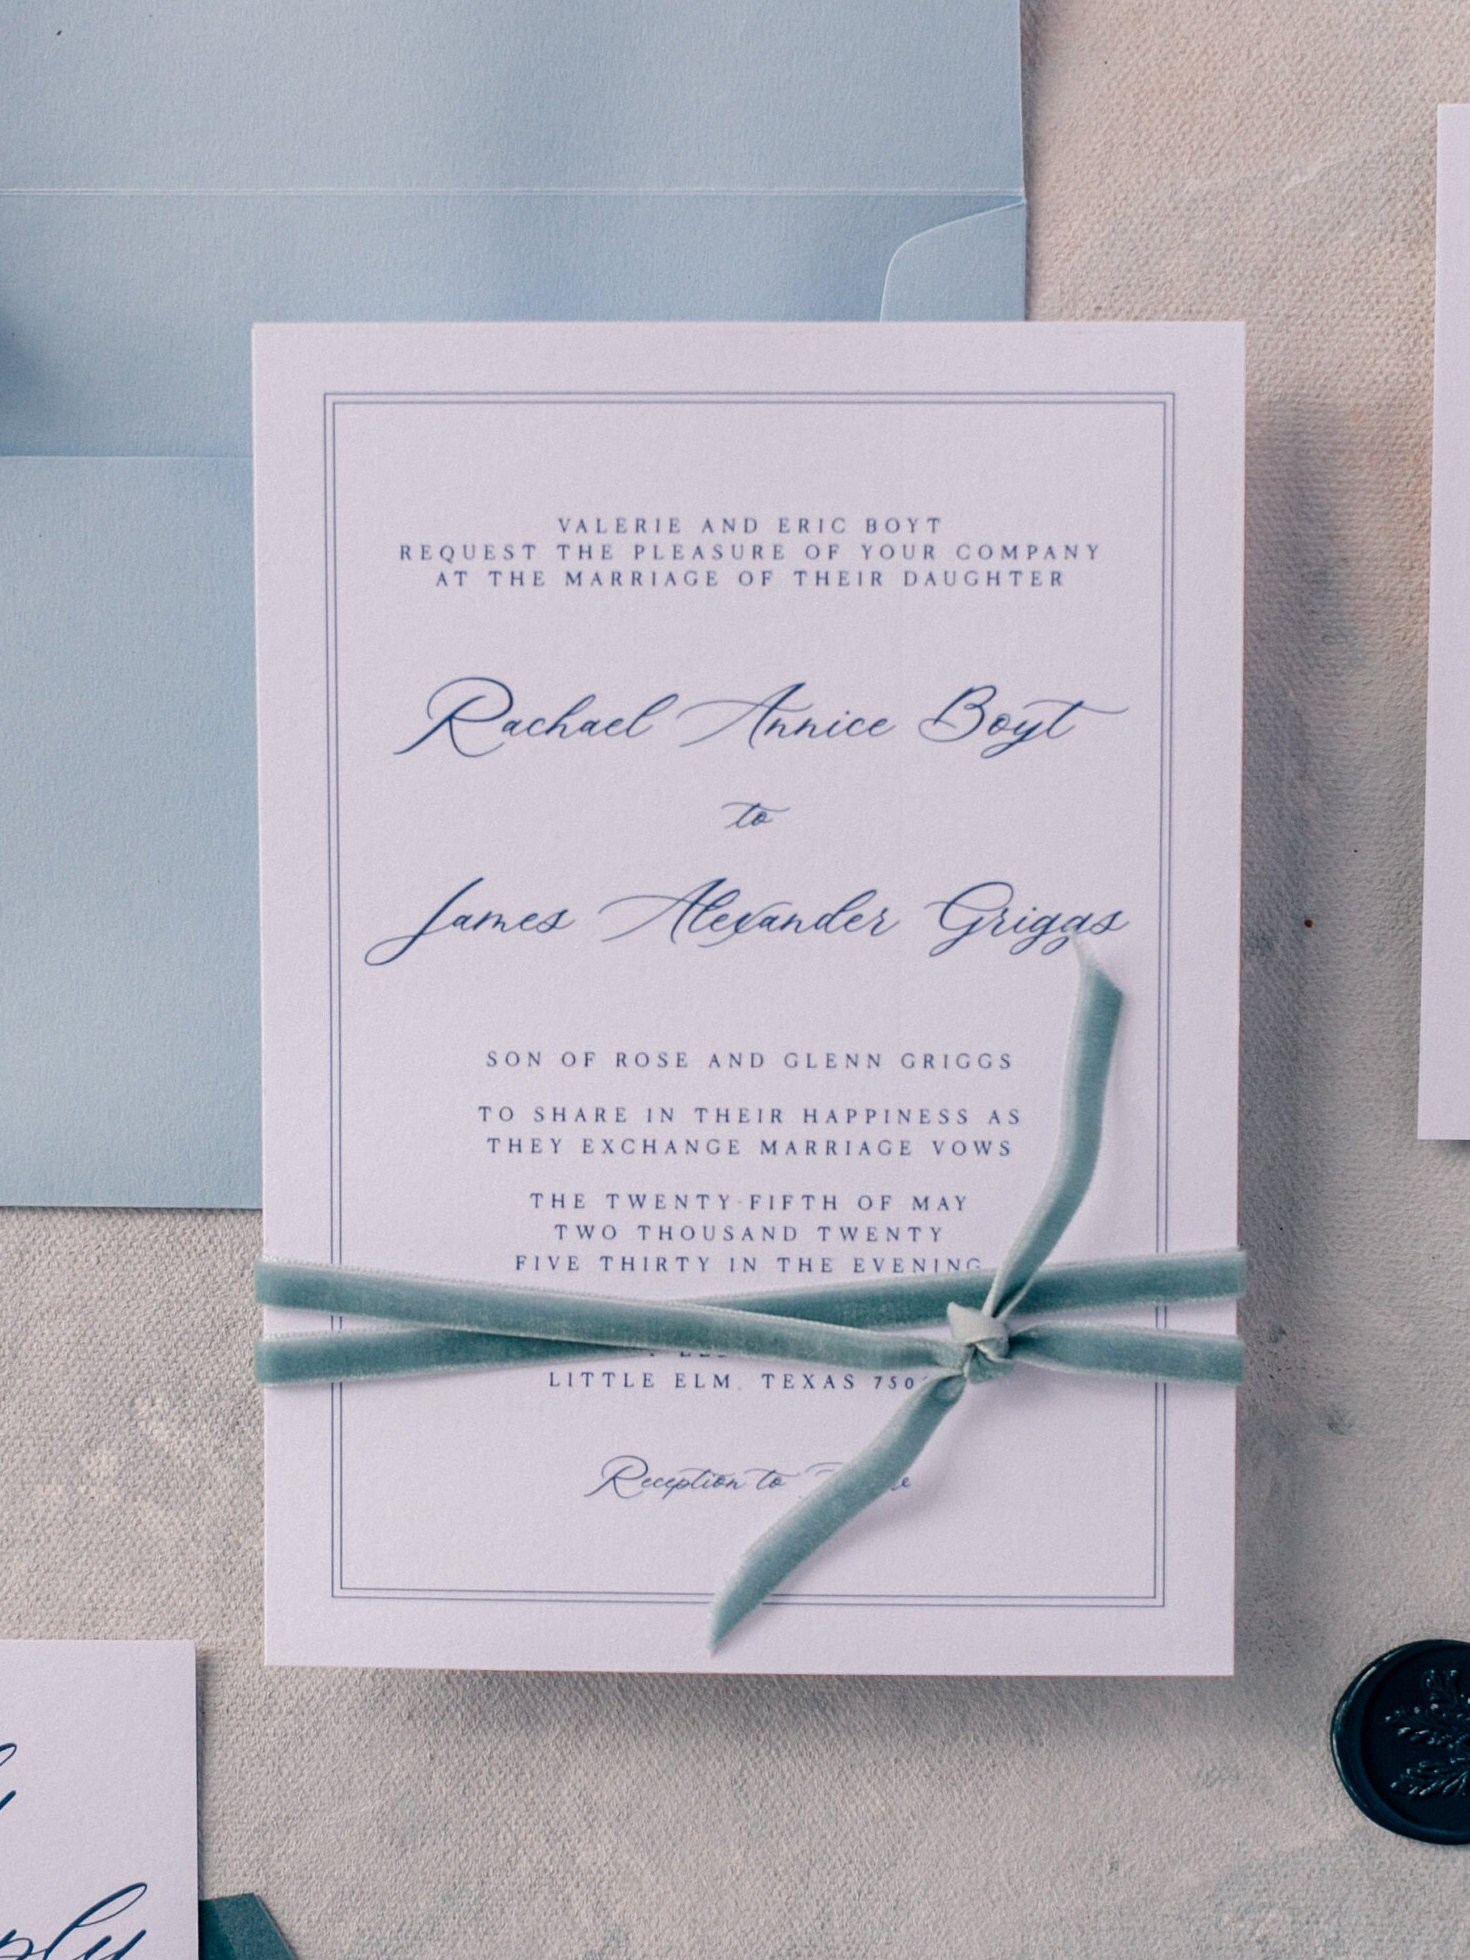 VALERIE AND ERIC BOYT
REQUEST THE PLEASURE OF YOUR COMPANY
AT THE MARRIAGE OF THEIR DAUGHTER
Rachael Annice Boyt
to
James Alexander Griggs
SON OF ROSE AND GLENN GRIGGS
TO SHARE IN THEIR HAPPINESS AS
THEY EXCHANGE MARRIAGE VOWS
THE TWENTY-FIFTH OF MAY
TWO THOUSAND TWENTY
FIVE THIRTY IN THE EVENING
LITTLE ELM, TEXAS
Reception to